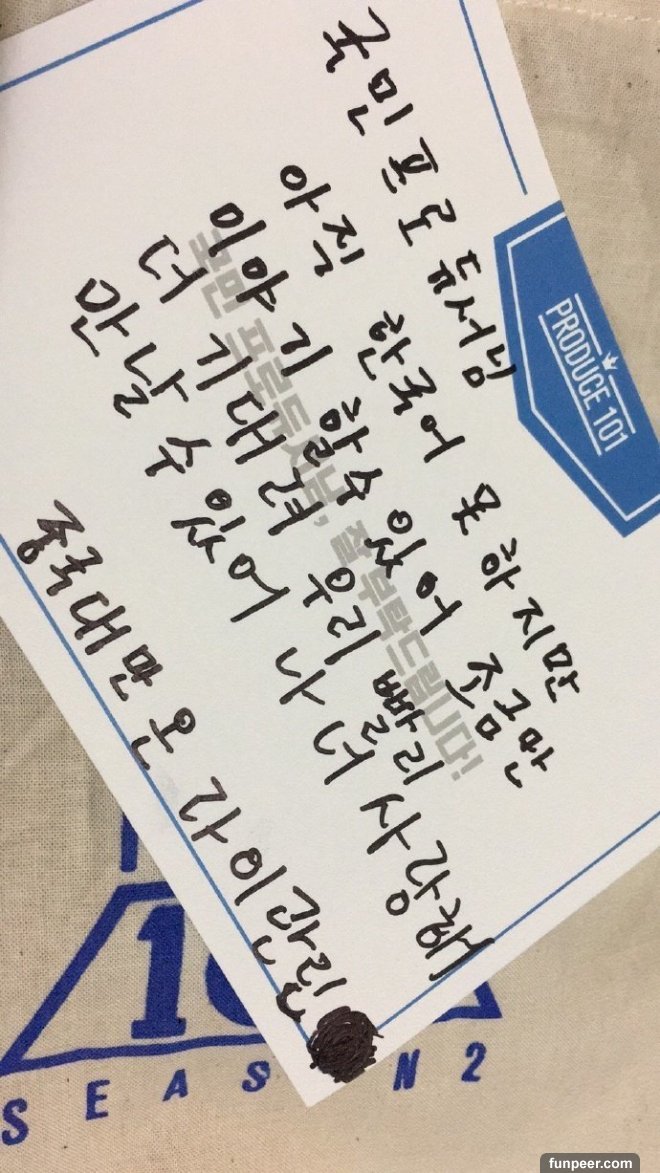 국민 프로듀서님
아직 한국어 못 하지만
이야기 할수 있어 조금만
더 기대려 우리 빨리
만날 수 있어 나 너 사랑해
중국대만 온 라이관린
국민 프로듀서님, 잘 부탁드립니다!
PRODUCE 101
10
SEAS N 2
funpeer.com